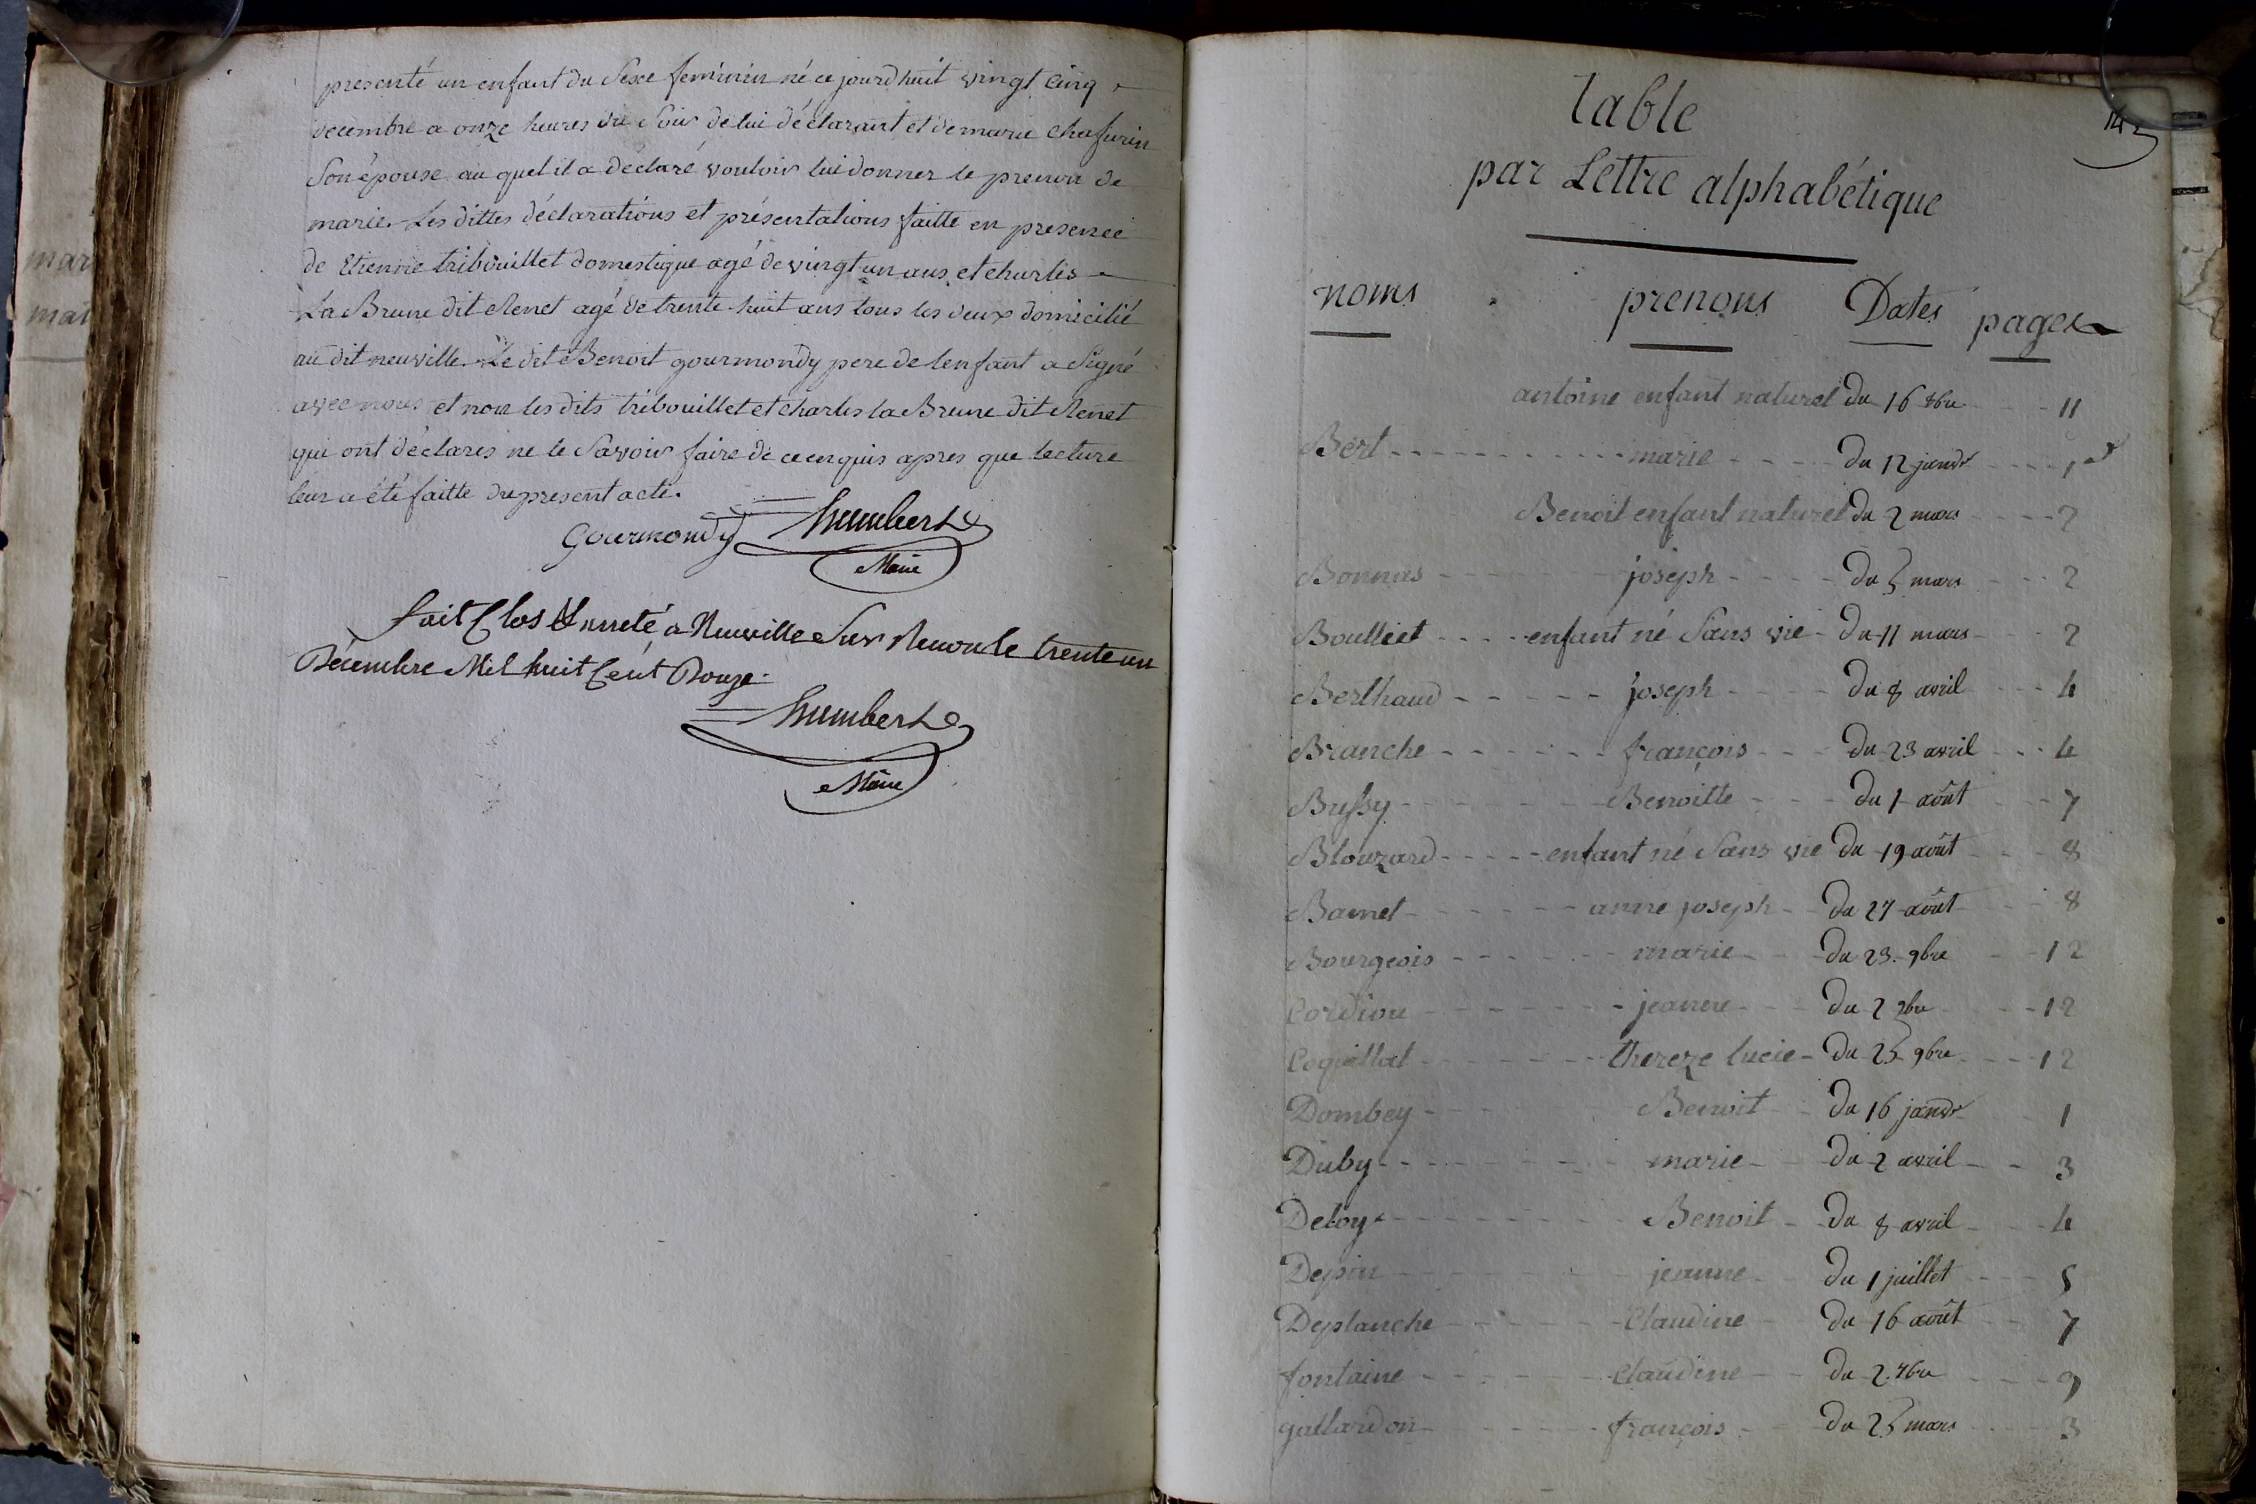 presenté un enfant du Sexe feminin né ce jourdhuit vingt cinq
decembre a onze heures du Soir de lui déclarant et de marie chafurin
Son épouse au quel il a déclaré vouloir lui donner le prenom de
marie. Les dittes déclarations et présentations faitte en presence
de Etienne tribouillet domestique agé de vingt un ans et charles
La Brune dit Renet agé de trente huit ans tous les deux domicilié
au dit neuville. Le dit Benoit gourmondy pere de lenfant a Signé
avec nous et non les dits tribouillet et charles la Brune dit Renet
qui ont déclarés ne le Savoir faire de ce enquis apres que lecture
leur a été faitte du present acte.
Gourmondy humbert
Maire
fait Clos & arreté a Neuville Sur Renon le trente un
Décembre Mil huit Cent Douze.
humbert
Maire
14
table
par Lettre alphabétique
noms prenoms Dates pages
antoine enfant naturel du 16 8bre 11
Bert marie du 12 janvr 1
Benoit enfant naturel du 2 mars 2
Bonnus joseph du 5 mars 2
Boulliet enfant né Sans vie du 11 mars 2
Berthaud joseph du 8 avril 4
Branche françois du 23 avril 4
Bussy Benoitte du 1 août 7
Blouzard enfant né Sans vie du 19 août 8
Bamet anne joseph du 27 août 8
Bourgeois marie du 23 9bre 12
Cordion jeanne du 2 12
Coquillat thereze lucie du 25 9bre 12
Dombey Benoit du 16 janvr 1
Duby marie du 2 avril 3
Deloy Benoit du 8 avril 4
Depin jeanne du 1 juillet 5
Deplanche Claudine du 16 août 7
fontaine Claudine du 2 7bre 9
gallardon françois du 25 mars 3